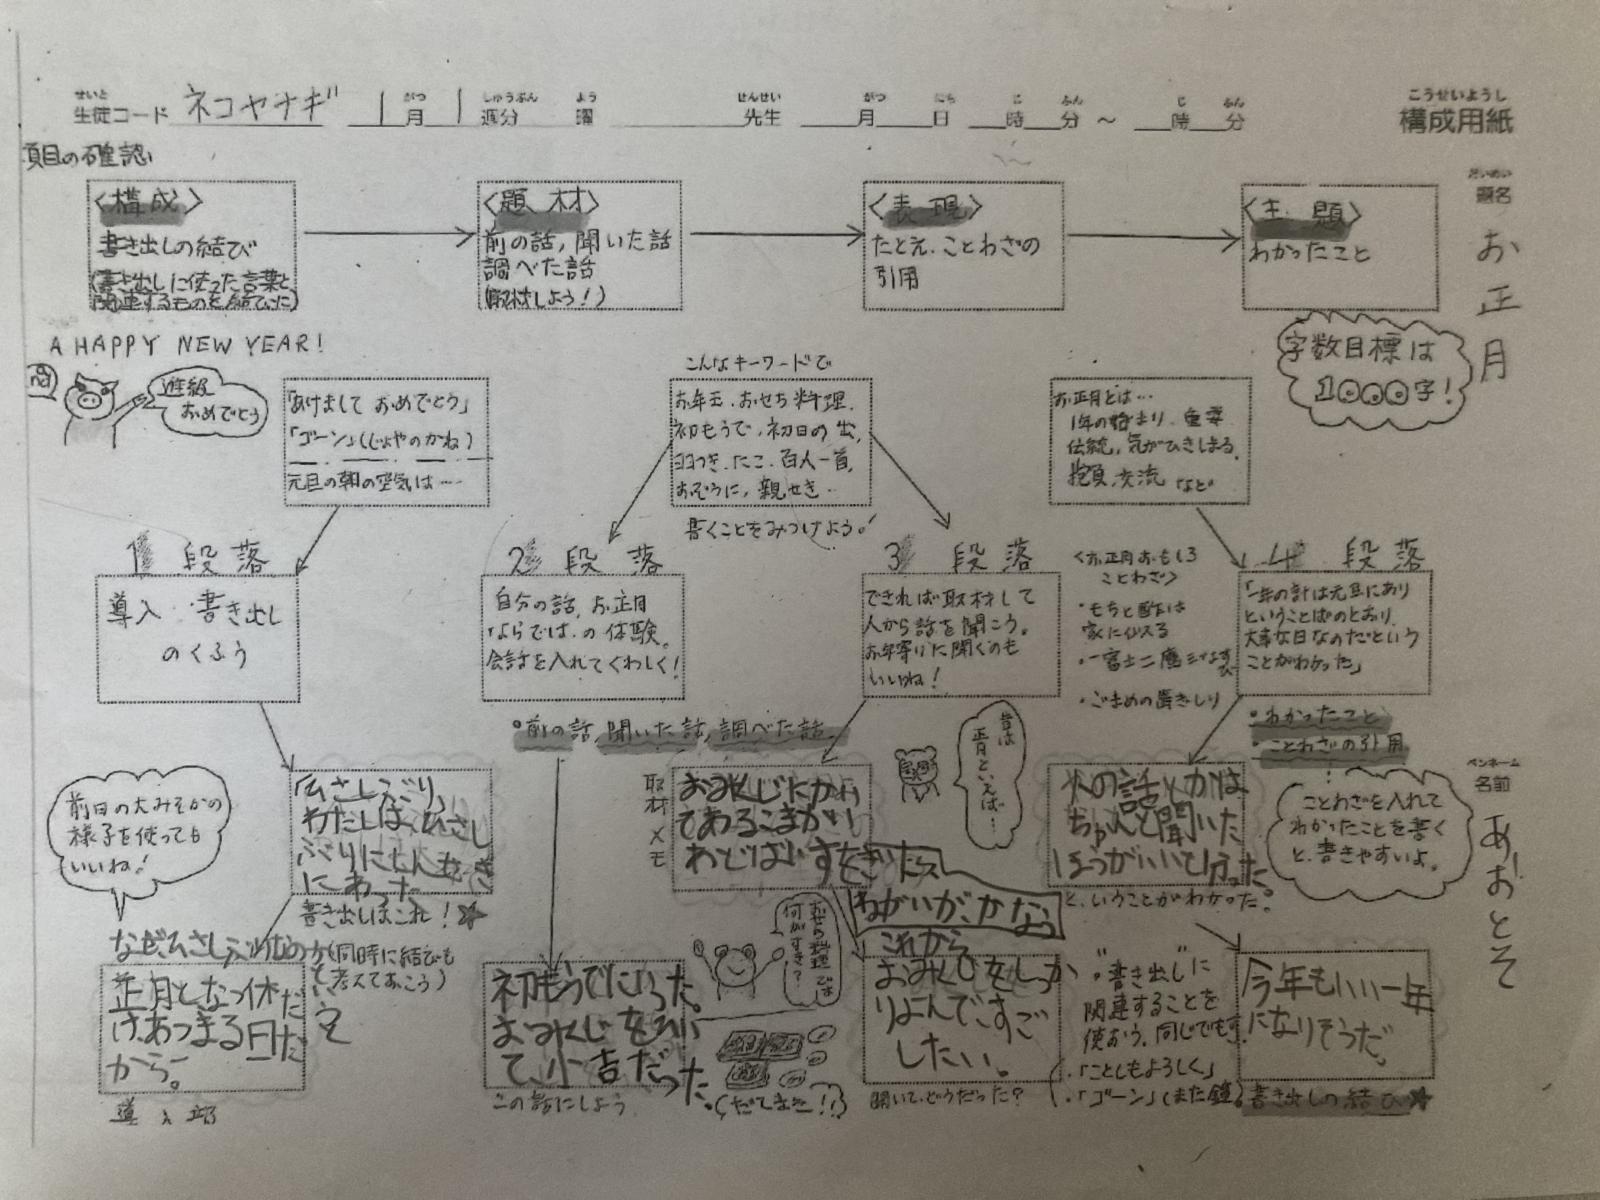 生徒コード ネコヤナギ 1月 1週分 曜 先生 月 日 時 分 ～ 時 分 構成用紙
せいと がつ しゅうぶん よう せんせい がつ にち じ ふん じ ふん こうせいようし
項目の確認
<構成>
書き出しの結び
(書き出しに使った言葉と
関連するものを結びに)
<題材>
前の話,聞いた話
調べた話
(取材しよう!)
<表現>
たとえ.ことわざの
引用
<主題>
わかったこと
だいめい
題名
お正月
字数目標は
1000字!
A HAPPY NEW YEAR!
進級
おめでとう
「あけまして おめでとう」
「ゴーン」(じょやのかね)
元旦の朝の空気は…
こんなキーワードで
お年玉.おせち料理.
初もうで.初日の出,
羽つき.たこ.百人一首,
おぞうに,親せき…
書くことをみつけよう!
お正月とは…
1年の始まり.
伝統,気がひきしまる.
抱負,交流 など
1段落
導入.書き出し
のくふう
2段落
自分の話,お正月
ならでは.の体験。
会話を入れてくわしく!
3段落
できれば取材して
人から話を聞こう。
お年寄りに聞くのも
いいね!
<お正月おもしろ
ことわざ>
・もちと酢は
家に似える
・一富士二鷹三なすび
・ごまめの歯ぎしり
4段落
「一年の計は元旦にあり
ということばのとおり,
大事な日なのだという
ことがわかった」
・わかったこと
・ことわざの引用
ことわざを入れて
わかったことを書く
と、書きやすいよ。
・前の話,聞いた話,調べた話
前日の大みそかの
様子を使っても
いいね!
「ひさしぶり」
わたしは、ひさし
ぶりに
にあった
書き出しはこれ!★
(同時に結びも
考えておこう)
なぜひさしぶりなのか
正月となつ休だ
けあつまる日だ
から。
導入部
初もうでにいった。
おみくじを
て、小吉だった。
この話にしよう
おせち料理では
何がすき?
取材メモ
おみくじにかい
てあるこまかい
ねがいが、かなう
昔は
正月といえば…
これから
おみくじをしっか
りよんですご
したい。
聞いて、どうだった?
人の話とかは
ちゃんと聞いた
ほうがいいと分った。
と、いうことがわかった。
"書き出し"に
関連することを
使おう,同じでも可
・「ことしもよろしく」
・「ゴーン」(また鐘)
今年もいい一年
になりそうだ。
書き出しの結び★
ペンネーム
名前
あおとそ